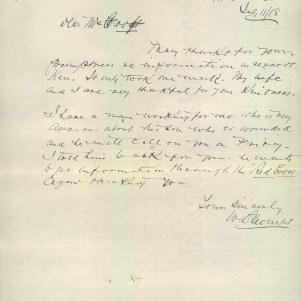 July 11/18
Dear Mr Croft
Many thanks for your
promptness re information as regards
him. It only took one week. My wife
and I are very thankful for your kindness.
I have a man working for me who is very
anxious about his son who is wounded
and he will call on you on Friday.
I told him to ask for you. He wants
to get information through the Red Cross
Again thanking you
Yours Sincerely
W. Thomas